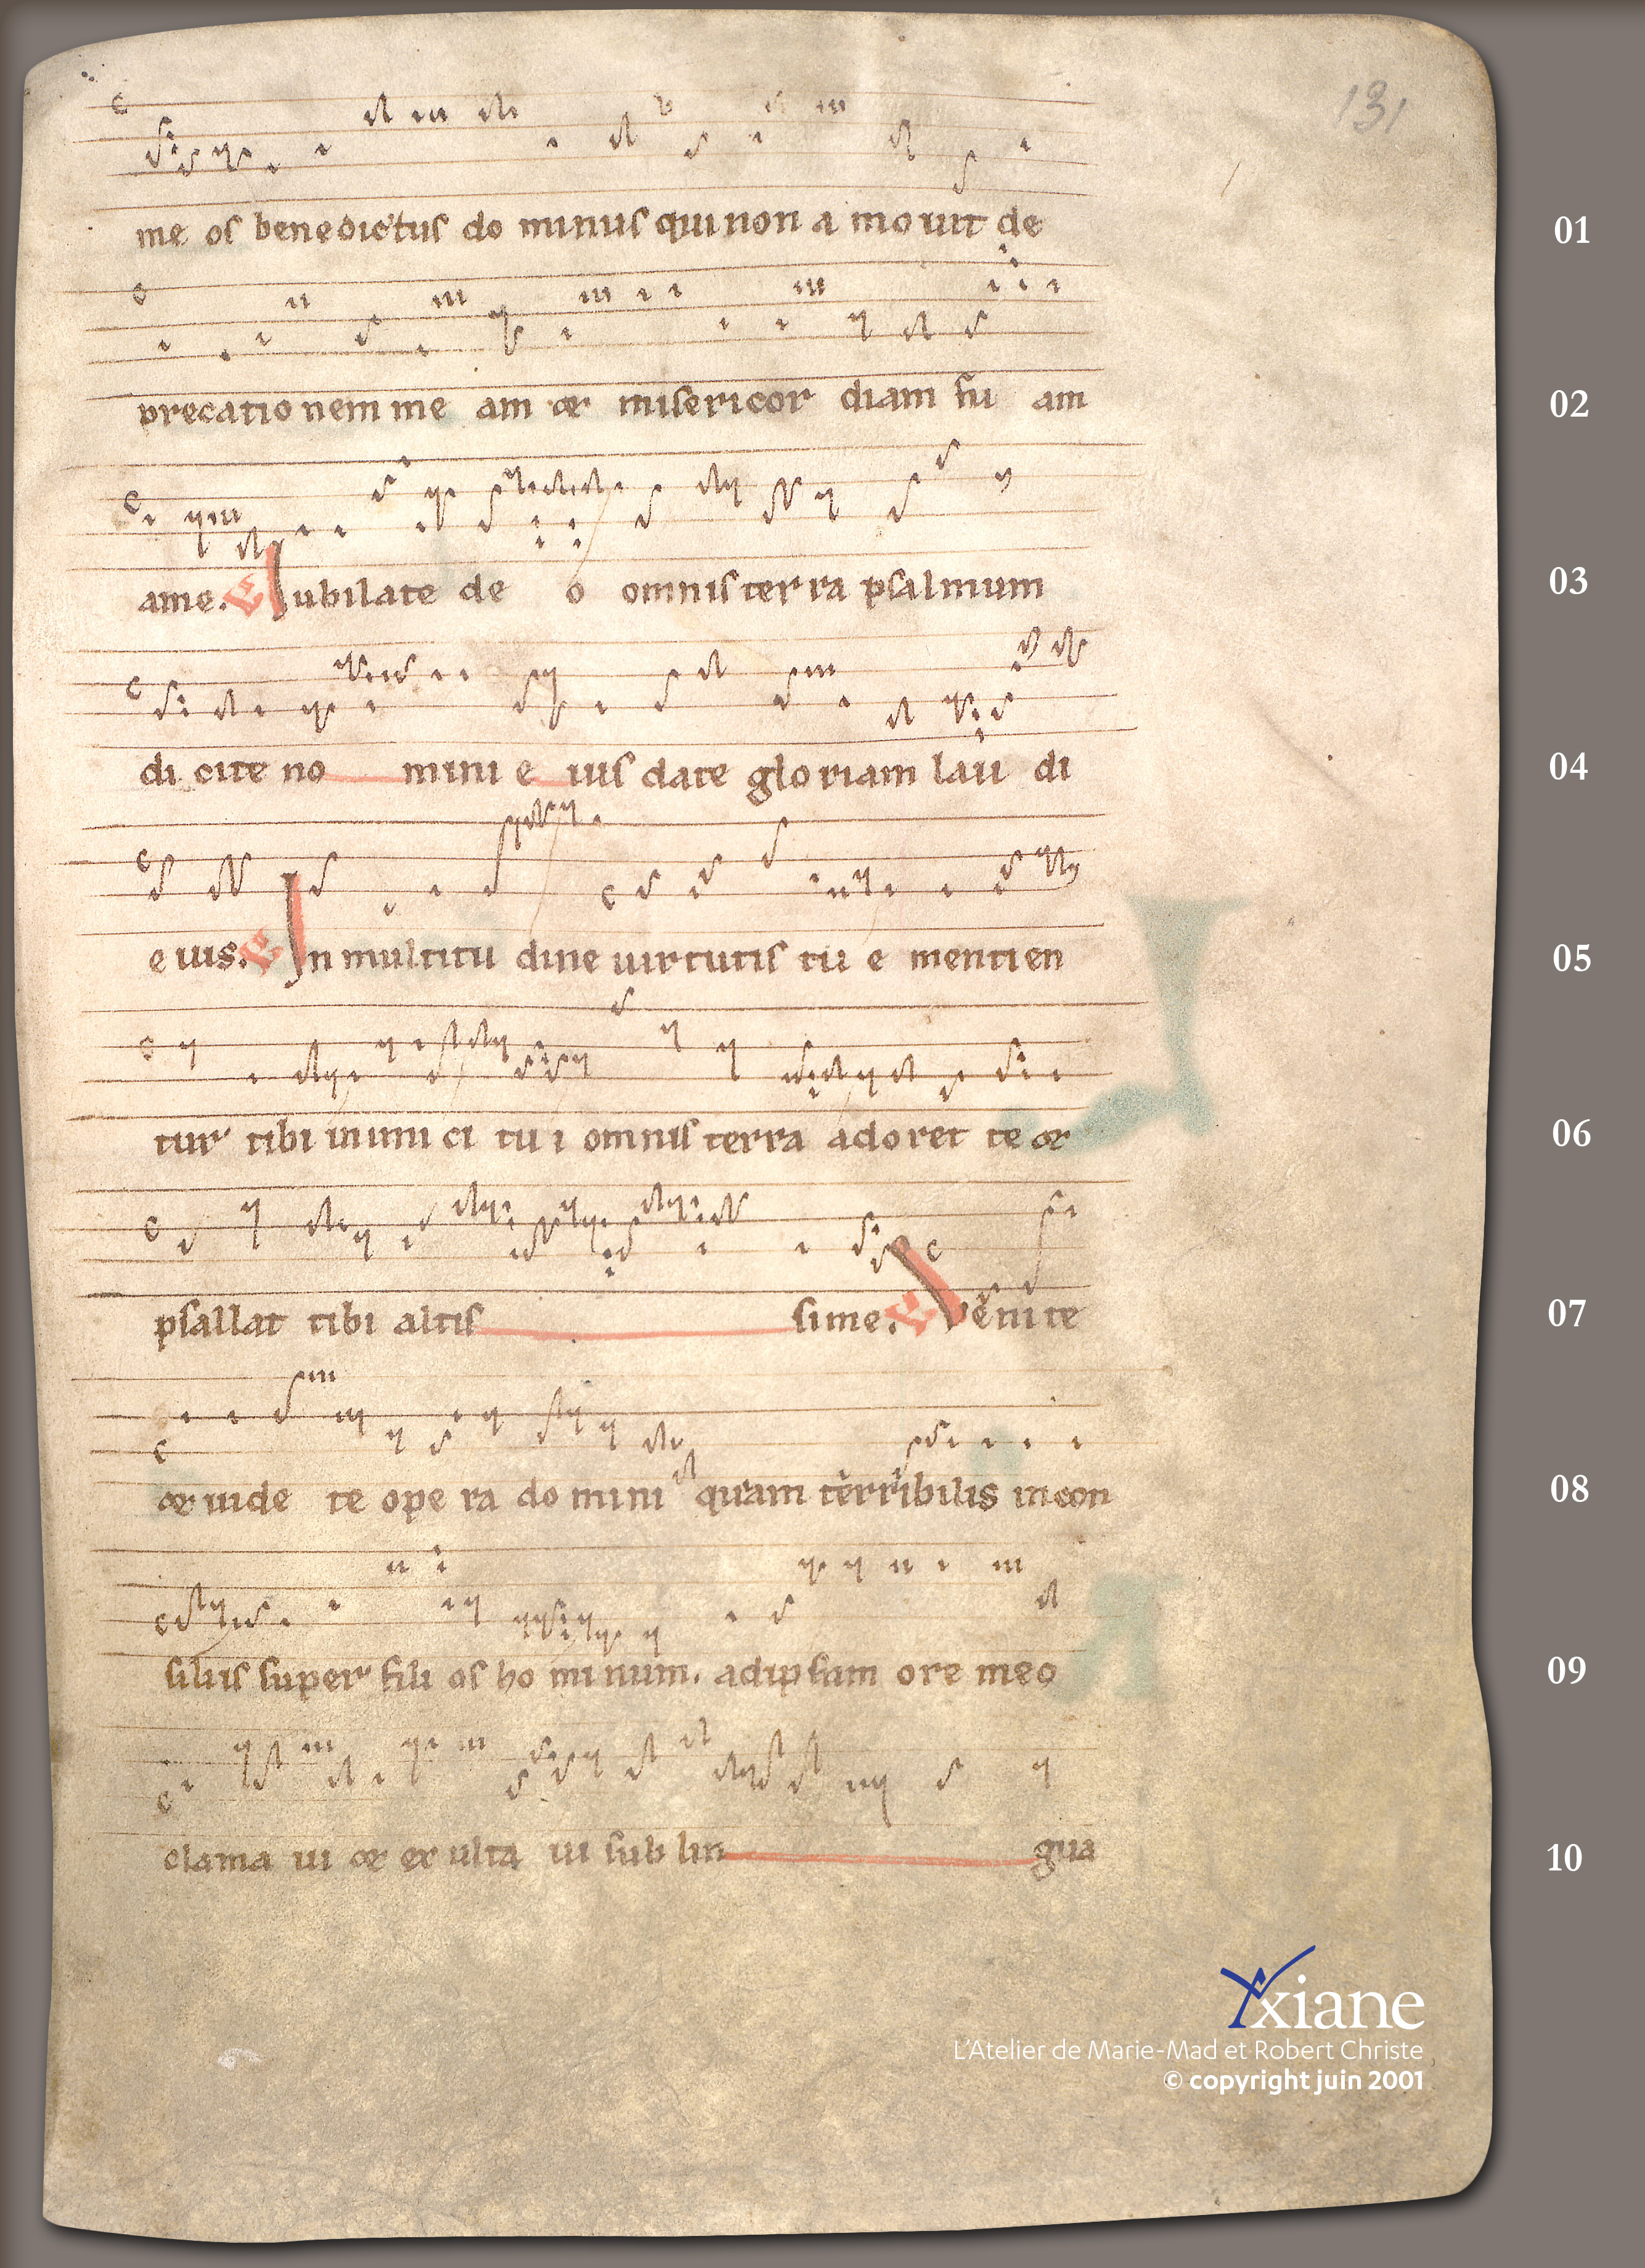 131
me os benedictus do minus qui non a mo uit de
01
precatio nem me am & misericor diam tu am
02
ame. V Iubilate de o omnis ter ra psalmum
03
di cite no mini e ius date glo riam lau di
04
e ius. V In multitu dine uirtutis tu e mentien
05
tur tibi inimi ci tu i omnis terra adoret te &
06
psallat tibi altis sime. V Venite
07
& uide te ope ra do mini quam terribilis in con
08
siliis super fili os ho minum. ad ipsum ore meo
09
clama ui & ex ulta ui sub lin gua
10
Axiane
L'Atelier de Marie-Mad et Robert Christe
© copyright juin 2001